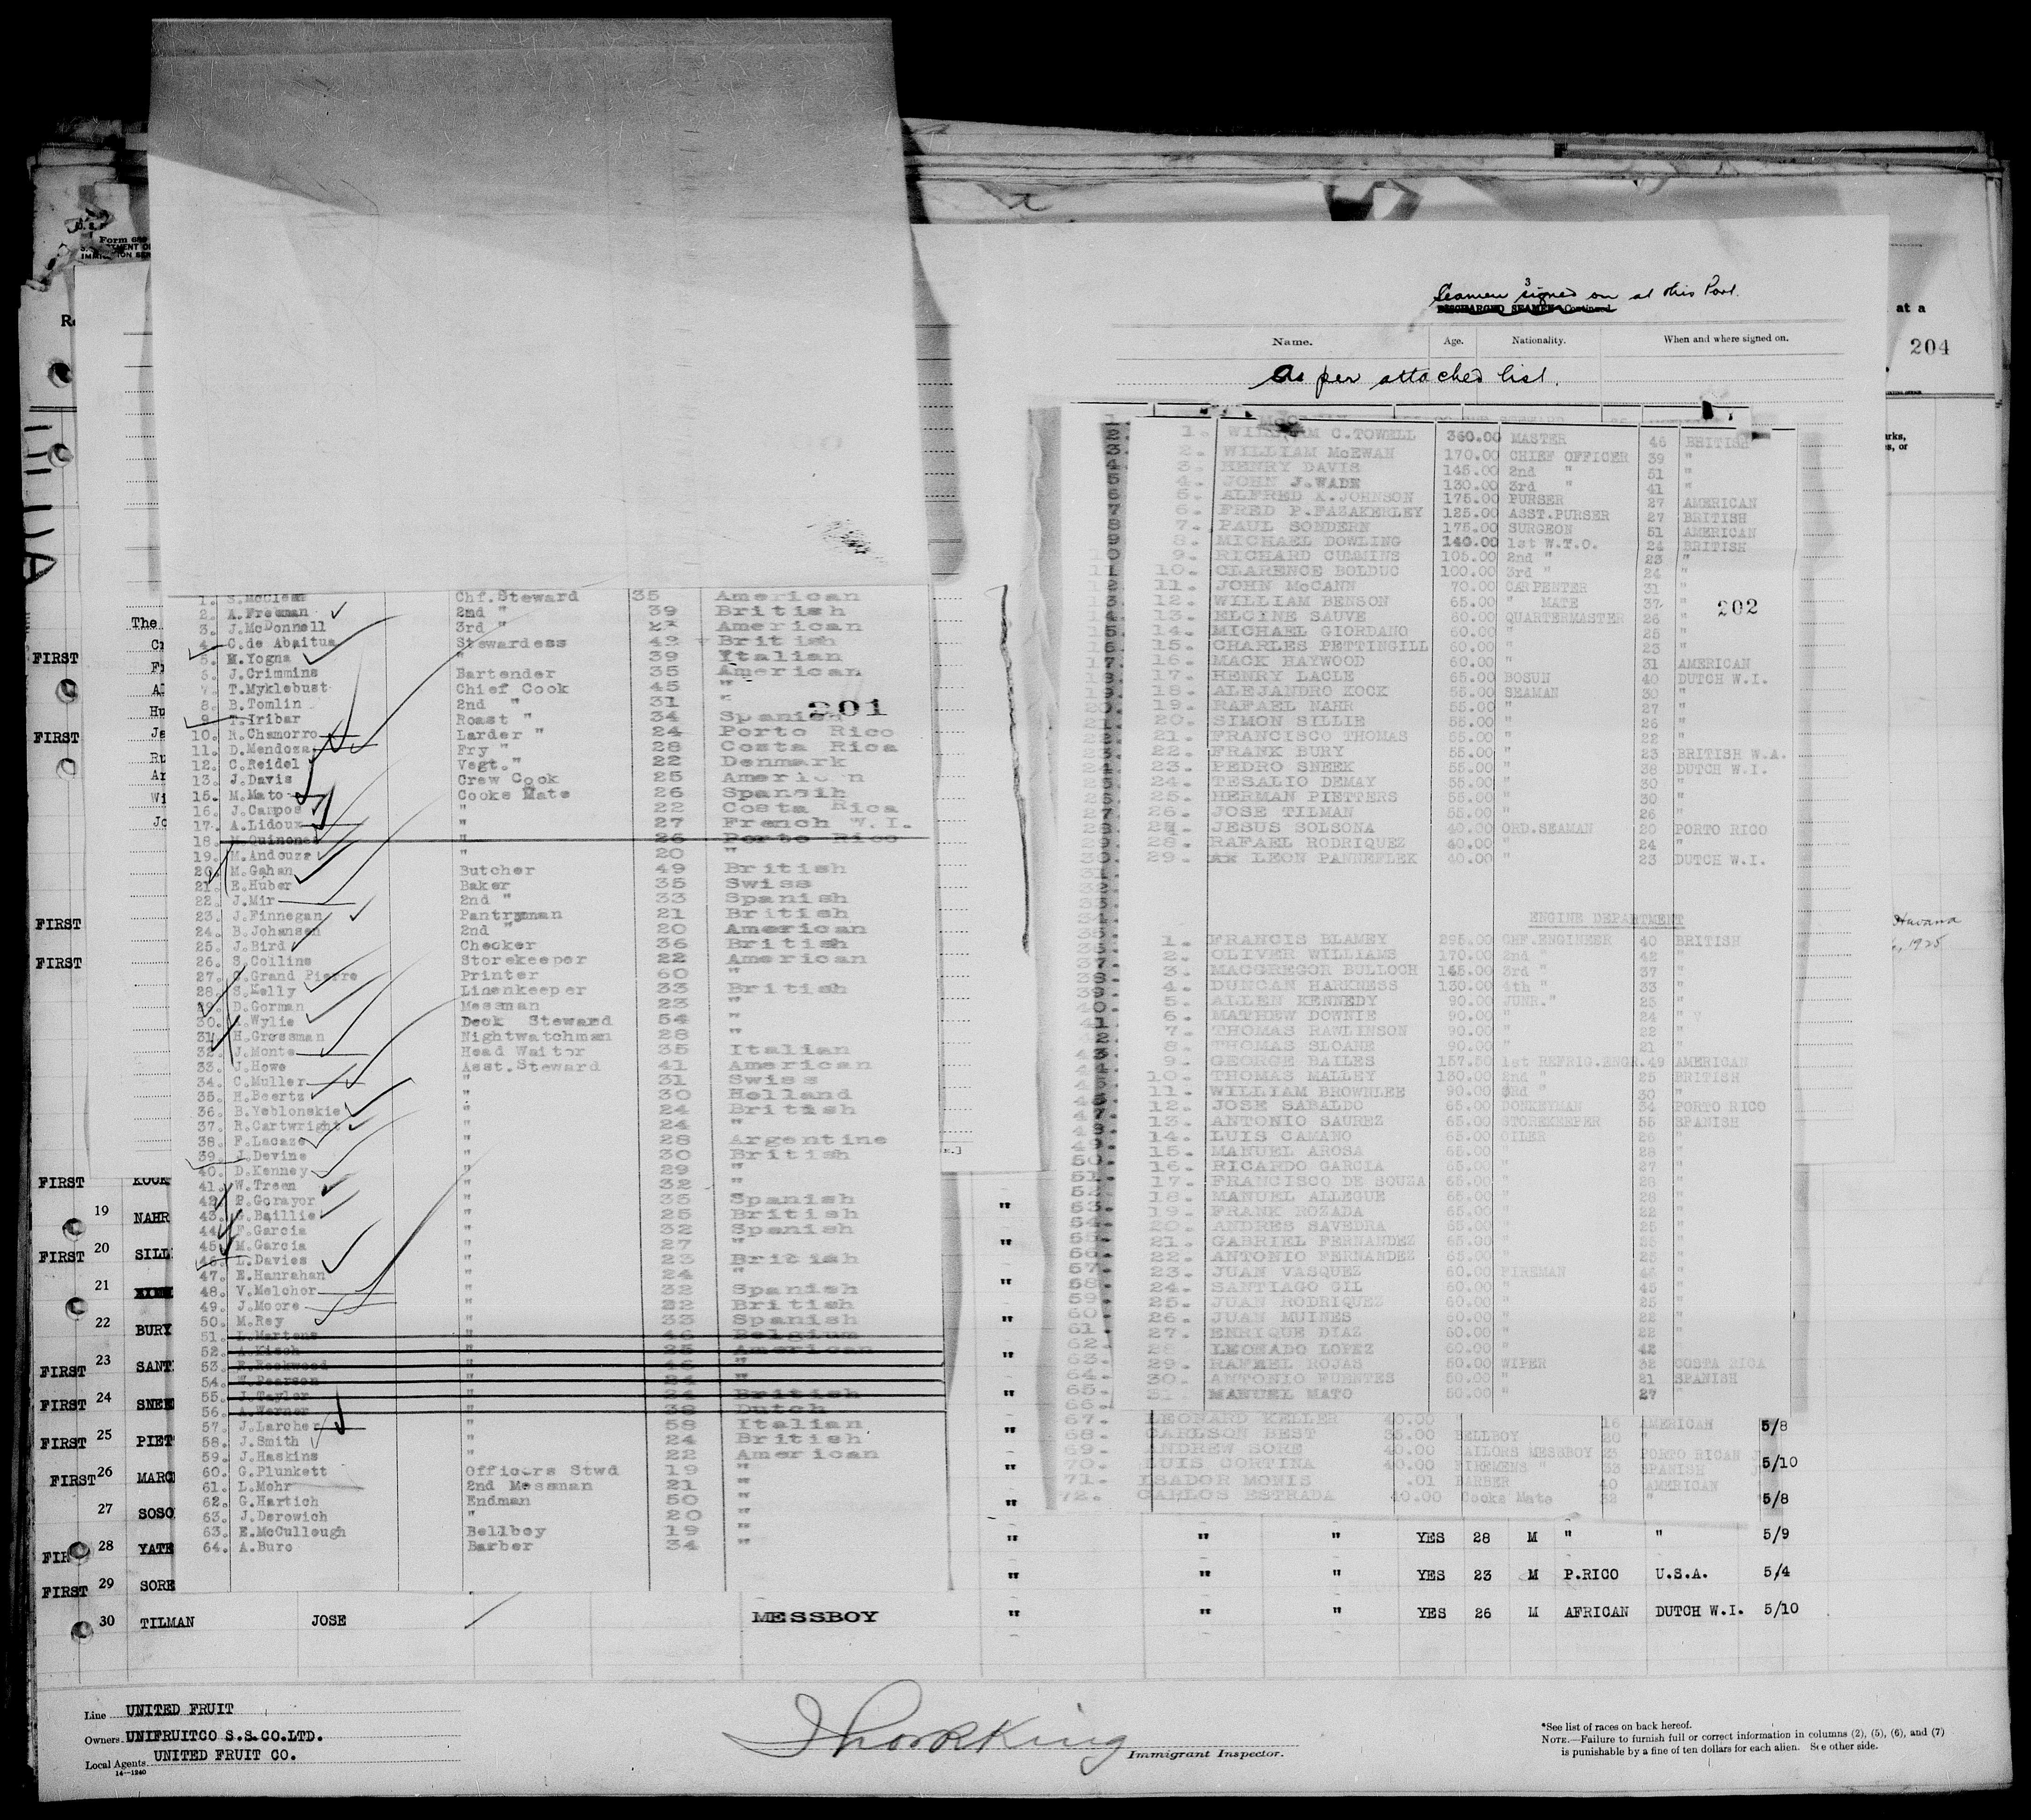 Form 689
U. S.
IMMIGRATION SER
TILUA
The
FIRST
FIRST
FIRST
FIRST
1. S.McClean Chf.Steward 35 American
2. A.Freeman 2nd " 39 British
3. J.McDonnell 3rd " American
4. C.de Abaitua Stewardess 42 British
5. M.Yogna " 39 Italian
6. J.Crimmins Bartender 35 American
7. T.Myklebust Chief Cook 45 "
8. B.Tomlin 2nd " 31 "
201
9. T.Iribar Roast " 34 Spanish
10. R.Chamorro Larder " 24 Porto Rico
11. D.Mendoza Fry " 28 Costa Rica
12. C.Reidel Vegt." 22 Denmark
13. J.Davis Crew Cook 25 American
15. M.Mato Cooks Mate 26 Spansih
16. J.Campos " 22 Costa Rica
17. A.Lidoux " 27 French W.I.
18. M.Quinones " 26 Porto Rico
19. M.Andouze " 20 "
20. M.Gahan Butcher 49 British
21. E.Huber Baker 35 Swiss
22. J.Mir 2nd " 33 Spanish
23. J.Finnegan Pantryman 21 British
24. B.Johansen 2nd " 20 American
25. J.Bird Checker 36 British
26. S.Collins Storekeeper 22 American
27. C.Grand Pierre Printer 60 "
28. S.Kelly Linenkeeper 33 British
29. D.Gorman Messman 23 "
30. Wylie Deck Steward 54 "
31. H.Grossman Nightwatchman 28 "
32. J.Monte Head Waitor 35 Italian
33. J.Howe Asst.Steward 41 American
34. C.Muller " 31 Swiss
35. H.Beertz " 30 Holland
36. B.Yeblonskie " 24 British
37. R.Cartwright " 24 "
38. F.Lacaze " 28 Argentine
39. J.Devine " 30 British
40. D.Kenney " 29 "
41. W.Treen " 32 "
42. P.Gorayor " 35 Spanish
43. G.Baillie " 25 British
44. F.Garcia " 32 Spanish
45. M.Garcia " 27 "
46. L.Davies " 23 British
47. E.Hanrahan " 24 "
48. V.Melchor " 32 Spanish
49. J.Moore " 22 British
50. M.Rey " 33 Spanish
51. L.Martens " 46 Belgium
52. A.Kisch " 25 American
53. F.Rockwood " 46 "
54. W.Pearson " 24 "
55. J.Taylor " 24 British
56. A.Werner " 38 Dutch
57. J.Larcher " 58 Italian
58. J.Smith " 24 British
59. J.Haskins " 22 American
60. G.Plunkett Officers Stwd 19 "
61. L.Mohr 2nd Messman 21 "
62. G.Hartich Endman 50 "
63. J.Derowich " 20 "
63. E.McCullough Bellboy 19 "
64. A.Buro Barber 34 "
Seamen signed on at this Port.
3
DISCHARGED SEAMEN—Continued
Name. Age. Nationality. When and where signed on.
As per attached list.
at a
204
1. WILLIAM C.TOWELL 360.00 MASTER 46 BRITISH
2. WILLIAM McEWAN 170.00 CHIEF OFFICER 39 "
3. HENRY DAVIS 145.00 2nd " 51 "
4. JOHN J.WADE 130.00 3rd " 41 "
5. ALFRED K.JOHNSON 175.00 PURSER 27 AMERICAN
6. FRED P.FAZAKERLEY 125.00 ASST.PURSER 27 BRITISH
7. PAUL SONDERN 175.00 SURGEON 51 AMERICAN
8. MICHAEL DOWLING 140.00 1st W.T.O. 24 BRITISH
9. RICHARD CUMMINS 105.00 2nd " 23 "
10. CLARENCE BOLDUC 100.00 3rd " 24 "
11. JOHN McCANN 70.00 CARPENTER 31 "
12. WILLIAM BENSON 65.00 " MATE 37 "
202
13. ELGINE SAUVE 60.00 QUARTERMASTER 26 "
14. MICHAEL GIORDANO 60.00 " 25 "
15. CHARLES PETTINGILL 60.00 " 23 "
16. MACK HAYWOOD 60.00 " 31 AMERICAN
17. HENRY LACLE 65.00 BOSUN 40 DUTCH W.I.
18. ALEJANDRO KOCK 55.00 SEAMAN 30 "
19. RAFAEL NAHR 55.00 " 27 "
20. SIMON SILLIE 55.00 " 26 "
21. FRANCISCO THOMAS 55.00 " 22 "
22. FRANK BURY 55.00 " 23 BRITISH W.A.
23. PEDRO SNEEK 55.00 " 38 DUTCH W.I.
24. TESALIO DEMAY 55.00 " 30 "
25. HERMAN PIETTERS 55.00 " 30 "
26. JOSE TILMAN 55.00 " 26 "
JESUS SOLSONA 40.00 ORD.SEAMAN 20 PORTO RICO
28. RAFAEL RODRIQUEZ 40.00 " 24 "
29. LEON PANNEFLEK 40.00 " 23 DUTCH W.I.
ENGINE DEPARTMENT
Havana
, 1925
1. FRANCIS BLAMEY 295.00 CHF.ENGINEER 40 BRITISH
2. OLIVER WILLIAMS 170.00 2nd " 42 "
3. MACGREGOR BULLOCH 145.00 3rd " 37 "
4. DUNCAN HARKNESS 130.00 4th " 33 "
5. ALLEN KENNEDY 90.00 JUNR." 25 "
6. MATHEW DOWNIE 90.00 " 24 "
7. THOMAS RAWLINSON 90.00 " 22 "
8. THOMAS SLOANE 90.00 " 21 "
9. GEORGE BAILES 157.50 1st REFRIG.ENGR. 49 AMERICAN
10. THOMAS MALLEY 130.00 2nd " 25 BRITISH
11. WILLIAM BROWNLEE 90.00 3rd " 30 "
12. JOSE SABALDO 65.00 DONKEYMAN 34 PORTO RICO
13. ANTONIO SAUREZ 65.00 STOREKEEPER 55 SPANISH
14. LUIS CAMANO 65.00 OILER 26 "
15. MANUEL AROSA 65.00 " 28 "
16. RICARDO GARCIA 65.00 " 27 "
17. FRANCISCO DE SOUZA 65.00 " 28 "
18. MANUEL ALLEGUE 65.00 " 28 "
19. FRANK ROZADA 65.00 " 22 "
20. ANDRES SAVEDRA 65.00 " 25 "
21. GABRIEL FERNANDEZ 65.00 " 25 "
22. ANTONIO FERNANDEZ 65.00 " 25 "
23. JUAN VASQUEZ 60.00 FIREMAN "
24. SANTIAGO GIL 60.00 " 45 "
25. JUAN RODRIQUEZ 60.00 " 25 "
26. JUAN MUINES 60.00 " 22 "
27. ENRIQUE DIAZ 60.00 " 22 "
28 LEONADO LOPEZ 60.00 " 42 "
29. RAFAEL ROJAS 50.00 WIPER 32 COSTA RICA
30. ANTONIO FUENTES 50.00 " 21 SPANISH
31. MANUEL MATO 50.00 " 27 "
67. LEONARD KELLER 40.00 " 16 AMERICAN 5/8
68. CARLSON BEST 35.00 BELLBOY 20 "
69. ANDREW SORE 40.00 SAILORS MESSBOY 23 PORTO RICAN
70. LUIS CORTINA 40.00 FIREMENS " 33 SPANISH 5/10
71. ISADOR MONIS .01 BARBER 40 AMERICAN
72. CARLOS ESTRADA 40.00 Cooks Mate 32 " 5/8
FIRST KOCK
19 NAHR "
FIRST 20 SILL "
21 "
22 BURY "
FIRST 23 SANT "
FIRST 24 SNEE "
FIRST 25 PIET "
FIRST 26 MARC "
27 SOSO "
FIR 28 YATE " " " YES 28 M " " 5/9
FIRST 29 SORE " " " YES 23 M P.RICO U.S.A. 5/4
30 TILMAN JOSE MESSBOY " " " YES 26 M AFRICAN DUTCH W.I. 5/10
Line UNITED FRUIT
Owners UNIFRUITCO S.S.CO.LTD.
Local Agents UNITED FRUIT CO.
14—1240
Immigrant Inspector.
*See list of races on back hereof.
NOTE.—Failure to furnish full or correct information in columns (2), (5), (6), and (7)
is punishable by a fine of ten dollars for each alien. See other side.